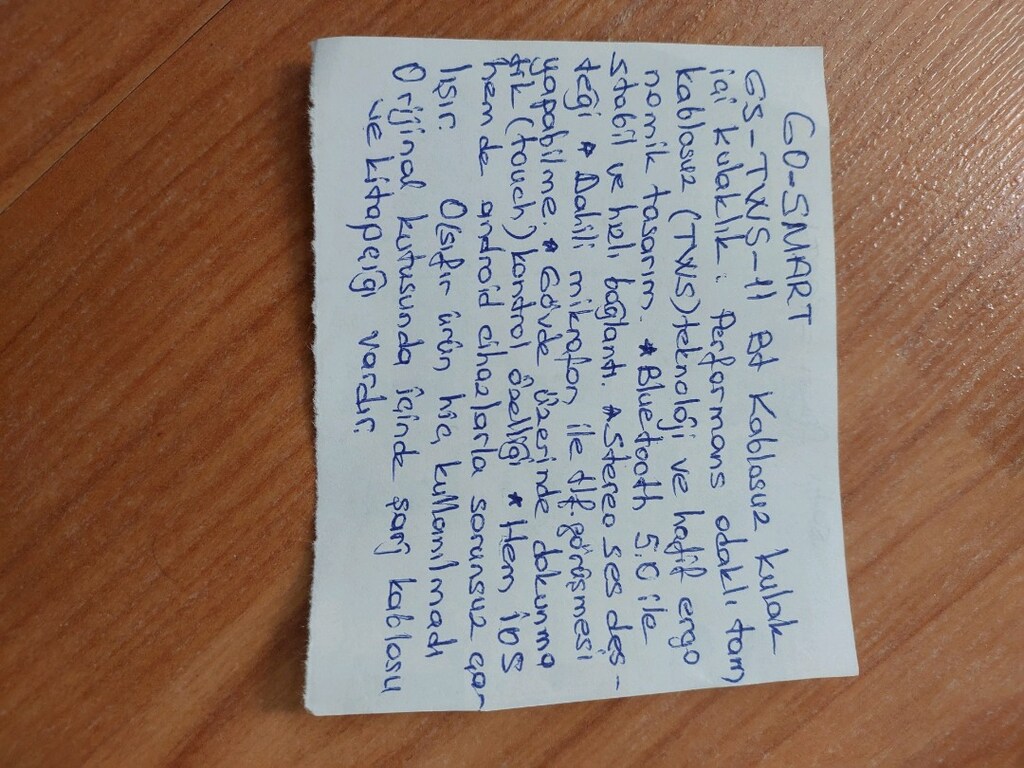 GO-SMART
GS-TWS-11 Bt Kablosuz kulak
içi kulaklık. Performans odaklı tam
kablosuz (TWS) teknoloji ve hafif ergo
nomik tasarım. * Bluetooth 5.0 ile
stabil ve hızlı bağlantı. * Stereo ses des-
teği * Dahili mikrofon ile tlf görüşmesi
yapabilme. * Gövde üzerinde dokunma
tik (touch) kontrol özelliği * Hem İOS
hem de android cihazlarla sorunsuz çar
lışır. O(sıfır ürün hiç kullanılmadı
Orijinal kutusunda içinde şarj kablosu
ve kitapçığı vardır.